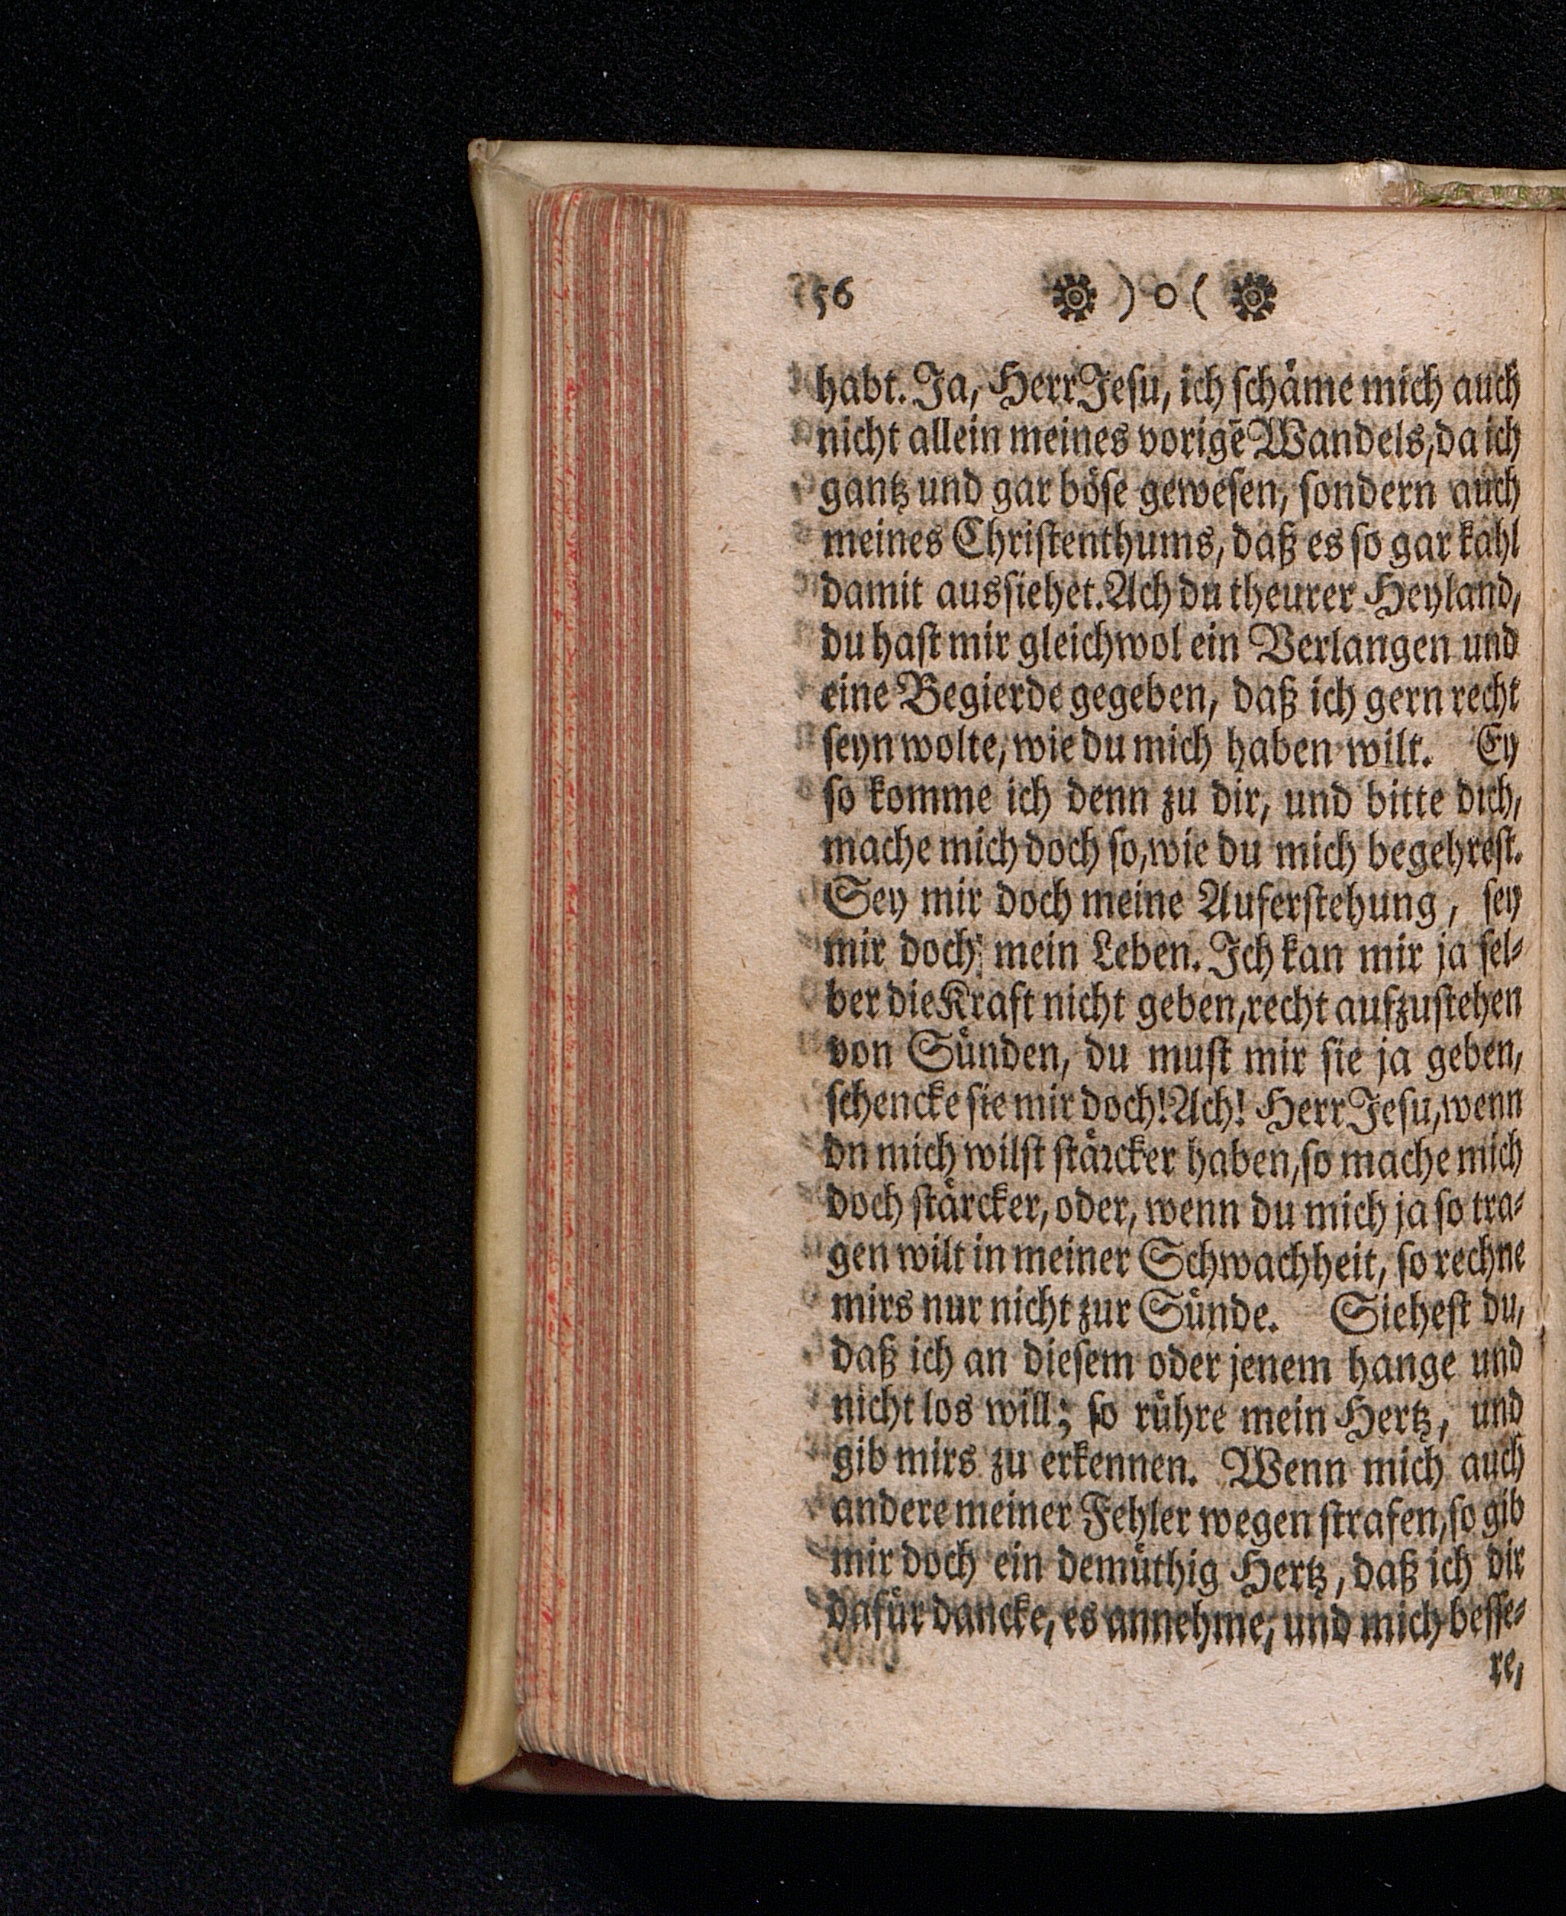 56 ❁ ) o ( ❁
habt. Ja, Herr Jesu, ich schäme mich auch
nicht allein meines vorigē Wandels, da ich
gantz und gar böse gewesen, sondern auch
meines Christenthums, daß es so gar kahl
damit aussiehet. Ach du theurer Heyland,
du hast mir gleichwol ein Verlangen und
eine Begierde gegeben, daß ich gern recht
seyn wolte, wie du mich haben wilt. Ey
so komme ich denn zu dir, und bitte dich,
mache mich doch so, wie du mich begehrest.
Sey mir doch meine Auferstehung, sey
mir doch mein Leben. Ich kan mir ja sel-
ber die Kraft nicht geben, recht aufzustehen
von Sünden, du must mir sie ja geben,
schencke sie mir doch! Ach! Herr Jesu, wenn
dn mich wilst stärcker haben, so mache mich
doch stärcker, oder, wenn du mich ja so tra-
gen wilt in meiner Schwachheit, so rechne
mirs nur nicht zur Sünde. Siehest du,
daß ich an diesem oder jenem hange und
nicht los will; so rühre mein Hertz, und
gib mirs zu erkennen. Wenn mich auch
andere meiner Fehler wegen strafen, so gib
mir doch ein demüthig Hertz, daß ich dir
dafür dancke, es annehme, und mich besse-
re,